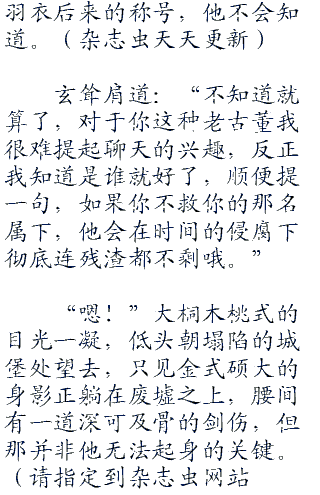 羽衣后来的称号，他不会知
道。（杂志虫天天更新）
玄耸肩道：“不知道就
算了，对于你这种老古董我
很难提起聊天的兴趣，反正
我知道是谁就好了，顺便提
一句，如果你不救你的那名
属下，他会在时间的侵腐下
彻底连残渣都不剩哦。”
“嗯！”大桐木桃式的
目光一凝，低头朝塌陷的城
堡处望去，只见金式硕大的
身影正躺在废墟之上，腰间
有一道深可及骨的剑伤，但
那并非他无法起身的关键。
（请指定到杂志虫网站